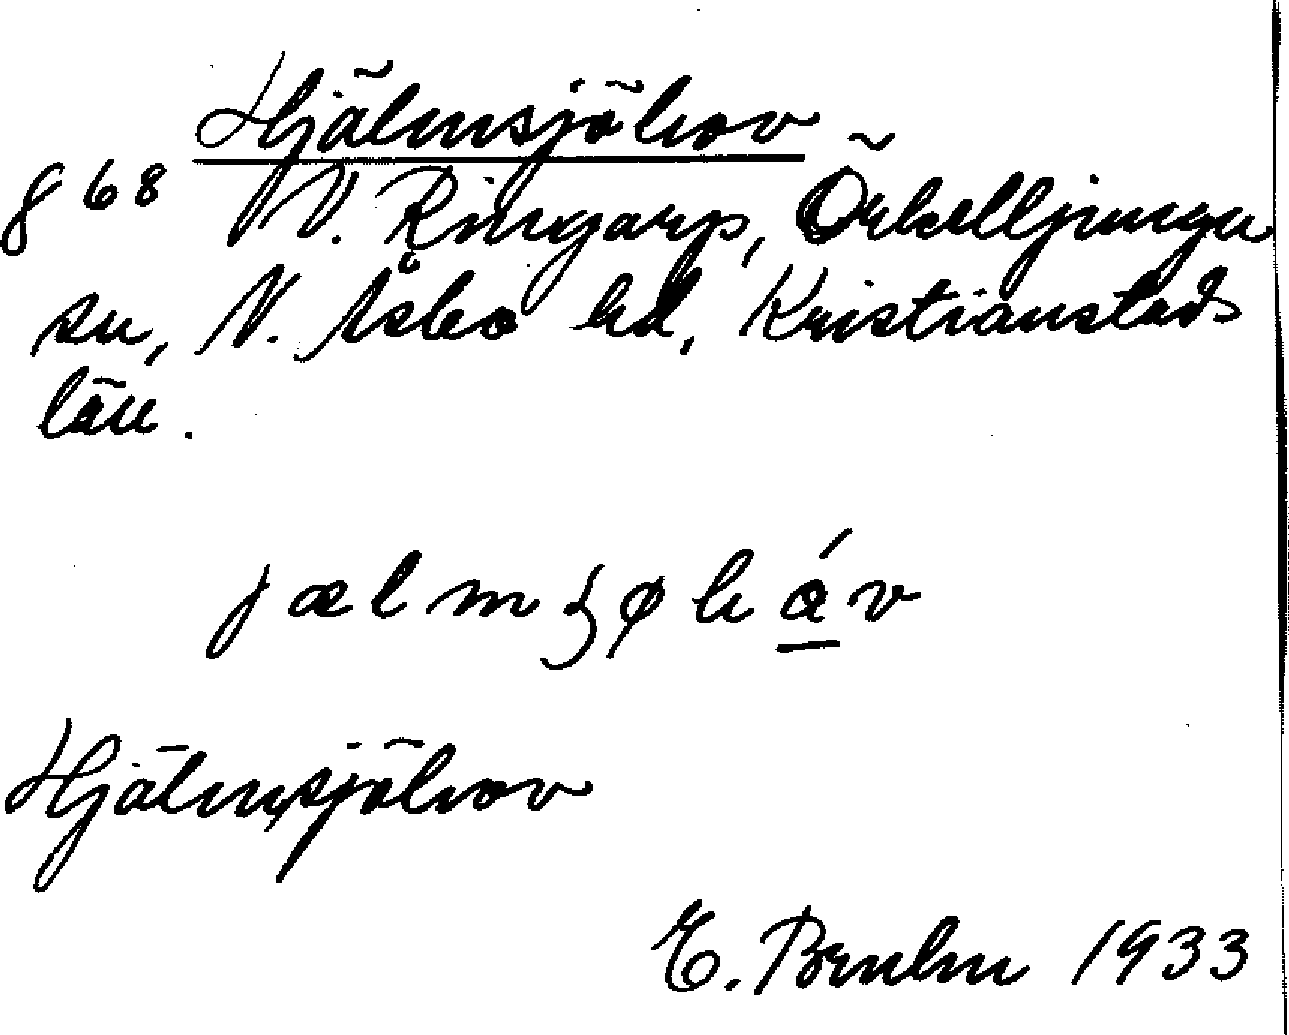 Hjälmsjöhov
g 68 N. Ringarp, Örkelljunga
sn, N. Åsbo hd, Kristianstads
län.
jælmʒøháv
Hjälmsjöhov
E. Bruhn 1933